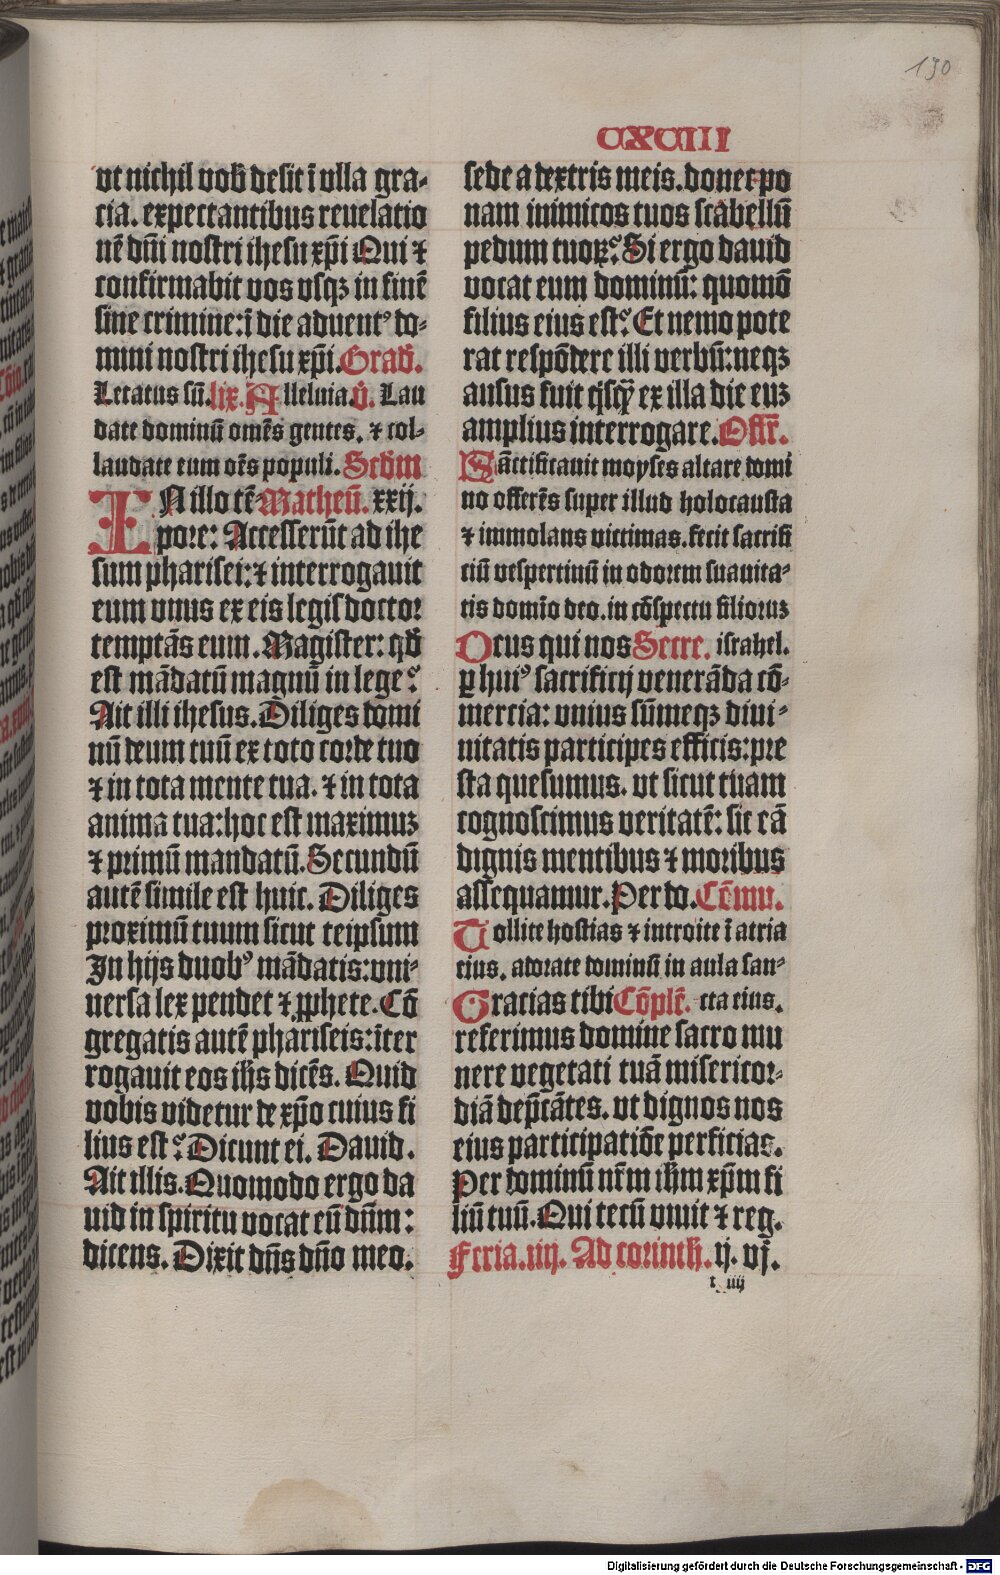 130
CXCIII
vt nichil vob̃ desit ĩ vlla gra⸗
cia. expectantibus reuelatio
nẽ dñi nostri ihesu xp̃i Qui ⁊
confirmabit vos vsqꝫ in finẽ
sine crimine: ĩ die aduentꝰ do⸗
mini nostri ihesu xp̃i. Grad̃.
Letatus sũ. lix. Alleluia v̄. Lau
date dominũ om̃es gentes. ⁊ col⸗
laudate eum oẽs populi. Scd̃m
IN illo tẽ Matheũ. xxij.
pore: Accesserũt ad ihe
sum pharisei: ⁊ interrogauit
eum vnus ex eis legis doctor
temptãs eum. Magister: qd̃
est mãdatũ magnũ in lege?
Ait illi ihesus. Diliges domi
nũ deum tuũ ex toto corde tuo
⁊ in tota mente tua. ⁊ in tota
anima tua: hoc est maximuꝫ
⁊ primũ mandatũ. Secundũ
autẽ simile est huic. Diliges
proximũ tuum sicut teipsum
In hijs duobꝰ mãdatis: vni⸗
uersa lex pendet ⁊ ꝓphete. Cõ
gregatis autẽ phariseis: ĩter
rogauit eos ih̃s dicẽs. Quid
vobis videtur de xp̃o cuius fi
lius est? Dicunt ei. Dauid.
Ait illis. Quomodo ergo da
uid in spiritu vocat eũ dñm:
dicens. Dixit dñs dño meo.
sede a dextris meis. donec po
nam inimicos tuos scabellũ
pedum tuoꝝ? Si ergo dauid
vocat eum dominũ: quomõ
filius eius est? Et nemo pote
rat respõdere illi verbũ: neqꝫ
ausus fuit q̃sq̃ ex illa die euꝫ
amplius interrogare. Offr̃.
Sãctificauit moyses altare domi
no offerẽs super illud holocausta
⁊ immolans victimas. fecit sacrifi
ciũ vespertinũ in odorem suauita⸗
tis domĩo deo. in cõspectu filioruꝫ
Deus qui nos Secre. israhel.
ꝑ huiꝰ sacrificij venerãda cõ⸗
mercia: vnius sũmeqꝫ diui⸗
nitatis participes efficis: pre
sta quesumus. vt sicut tuam
cognoscimus veritatẽ: sic eã
dignis mentibus ⁊ moribus
assequamur. Per do. Cõmu.
Tollite hostias ⁊ introite ĩ atria
eius. adorate dominũ in aula san⸗
Gracias tibi Cõplẽ. cta eius.
referimus domine sacro mu
nere vegetati tuã misericor⸗
diã dep̃cãtes. vt dignos nos
eius participatiõe perficias.
Per dominũ nr̃m ih̃m xp̃m fi
liũ tuũ. Qui tecũ viuit ⁊ reg.
Feria. iiij. Ad corinth. ij. vj.
r iiij
Digitalisierung gefördert durch die Deutsche Forschungsgemeinschaft - DFG